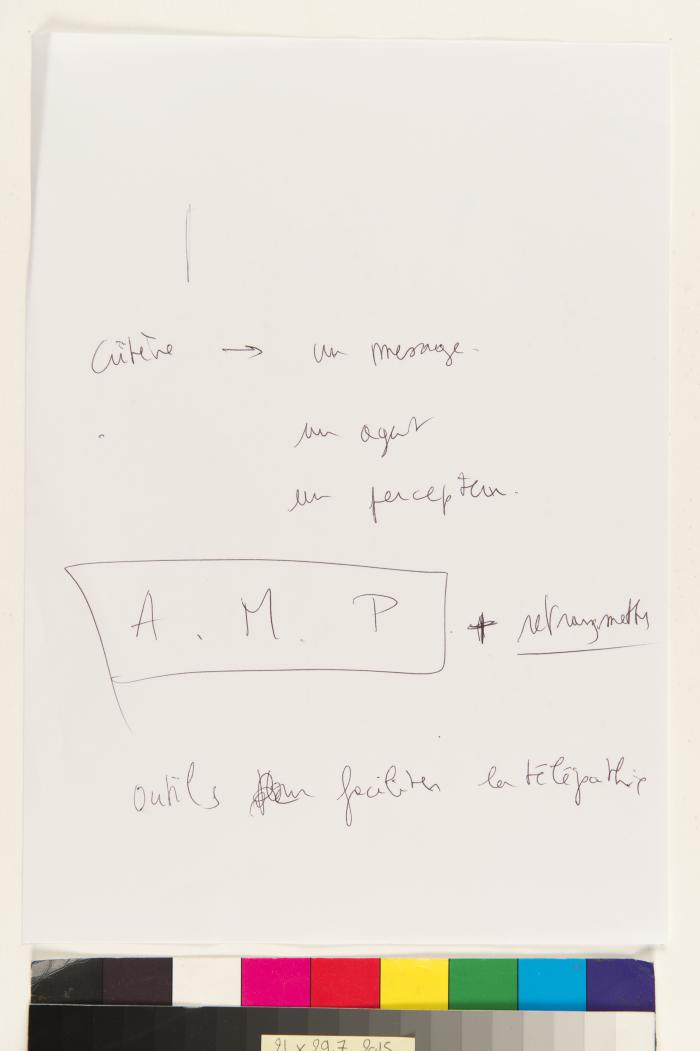 Critère → un message.
un agent
un percepteur.
A . M . P + retransmettre
outils pour faciliter la télépathie
21 x 29,7 2015